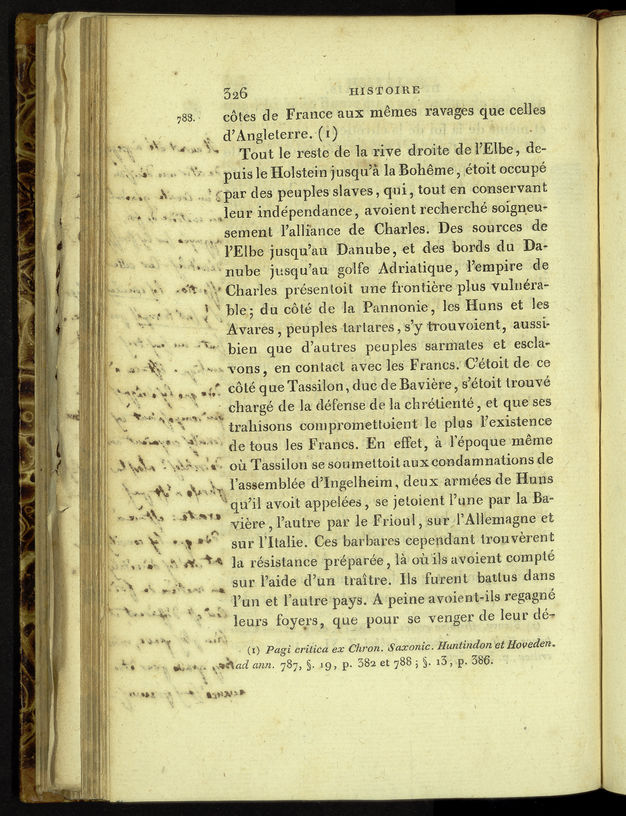 326 HISTOIRE
788. côtes de France aux mêmes ravages que celles
d'Angleterre. (1)
Tout le reste de la rive droite de l'Elbe, de-
puis le Holstein jusqu'à la Bohême, étoit occupé
par des peuples slaves, qui, tout en conservant
leur indépendance, avoient recherché soigneu-
sement l'alliance de Charles. Des sources de
l'Elbe jusqu'au Danube, et des bords du Da-
nube jusqu'au golfe Adriatique, l'empire de
Charles présentoit une frontière plus vulnéra-
ble; du côté de la Pannonie, les Huns et les
Avares, peuples tartares, s'y trouvoient, aussi
bien que d'autres peuples sarmates et escla-
vons, en contact avec les Francs. C'étoit de ce
côté que Tassilon, duc de Bavière, s'étoit trouvé
chargé de la défense de la chrétienté, et que ses
trahisons compromettoient le plus l'existence
de tous les Francs. En effet, à l'époque même
où Tassilon se soumettoit aux condamnations de
l'assemblée d'Ingelheim, deux armées de Huns
qu'il avoit appelées, se jetoient l'une par la Ba-
vière, l'autre par le Frioul, sur l'Allemagne et
sur l'Italie. Ces barbares cependant trouvèrent
la résistance préparée, là où ils avoient compté
sur l'aide d'un traître. Ils furent battus dans
l'un et l'autre pays. A peine avoient-ils regagné
leurs foyers, que pour se venger de leur dé-
(1) Pagi critica ex Chron. Saxonic. Huntindon et Hoveden.
ad ann. 787, §. 19, p. 382 et 788; §. 13, p. 386.